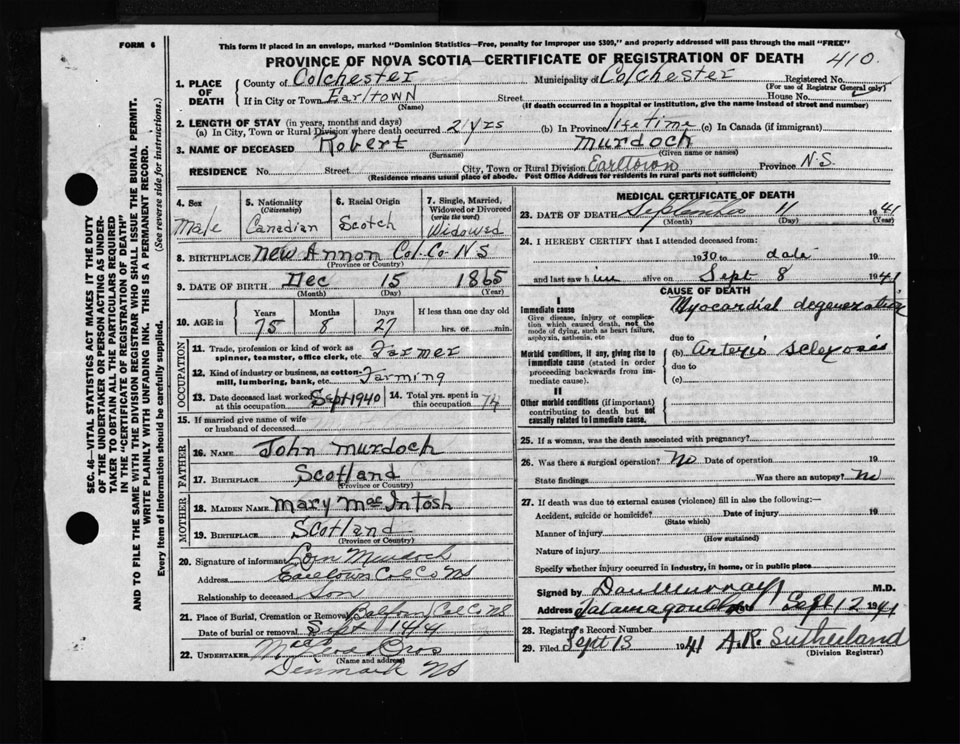 FORM 6
This form if placed in an envelope, marked "Dominion Statistics—Free, penalty for improper use $300," and properly addressed will pass through the mail "FREE"
PROVINCE OF NOVA SCOTIA—CERTIFICATE OF REGISTRATION OF DEATH 410.
1. PLACE OF DEATH
County of Colchester Municipality of Colchester Registered No.
(For use of Registrar General only)
If in City or Town Earltown Street House No.
(Name) (If death occurred in a hospital or institution, give the name instead of street and number)
2. LENGTH OF STAY (in years, months and days)
(a) In City, Town or Rural Division where death occurred 2 yrs (b) In Province lifetime (c) In Canada (if immigrant)
3. NAME OF DECEASED Robert Murdoch
(Surname) (Given name or names)
RESIDENCE No. Street City, Town or Rural Division Earltown Province N.S.
(Residence means usual place of abode. Post Office Address for residents in rural parts not sufficient)
4. Sex
Male
5. Nationality (Citizenship)
Canadian
6. Racial Origin
Scotch
7. Single, Married, Widowed or Divorced (write the word)
Widowed
8. BIRTHPLACE New Annon Col. Co NS
(Province or Country)
9. DATE OF BIRTH Dec 15 1865
(Month) (Day) (Year)
10. AGE in
Years Months Days If less than one day old
75 8 27 hrs. or min.
OCCUPATION
11. Trade, profession or kind of work as spinner, teamster, office clerk, etc. Farmer
12. Kind of industry or business, as cotton-mill, lumbering, bank, etc. Farming
13. Date deceased last worked at this occupation Sept 1940
14. Total yrs. spent in this occupation 74
15. If married give name of wife or husband of deceased
FATHER
16. NAME John Murdoch
17. BIRTHPLACE Scotland
(Province or Country)
MOTHER
18. MAIDEN NAME Mary MacIntosh
19. BIRTHPLACE Scotland
(Province or Country)
20. Signature of informant Murdoch
Address Earltown Col Co NS
Relationship to deceased Son
21. Place of Burial, Cremation or Removal Col Co NS
Date of burial or removal Sept 14
22. UNDERTAKER Bros
(Name and address)
Denmark NS
MEDICAL CERTIFICATE OF DEATH
23. DATE OF DEATH September 11 1941
(Month) (Day)
24. I HEREBY CERTIFY that I attended deceased from:
1930 to date 19
and last saw him alive on Sept 8 1941
CAUSE OF DEATH
I
Immediate cause Myocardial degeneration
Give disease, injury or complication which caused death, not the mode of dying, such as heart failure, asphyxia, asthenia, etc
due to
Morbid conditions, if any, giving rise to immediate cause (stated in order proceeding backwards from immediate cause).
(b) Arterio sclerosis
due to
(c)
II
Other morbid conditions (if important) contributing to death but not causally related to immediate cause.
25. If a woman, was the death associated with pregnancy?
26. Was there a surgical operation? No Date of operation 19
State findings Was there an autopsy? No
27. If death was due to external causes (violence) fill in also the following:—
Accident, suicide or homicide? Date of injury 19
(State which)
Manner of injury
(How sustained)
Nature of injury
Specify whether injury occurred in industry, in home, or in public place
Signed by Dan Murray M.D.
Address Tatamagouche Sept 12 1941
28. Registrar's Record Number
29. Filed Sept 13 1941 A.R. Sutherland
(Division Registrar)
SEC. 46—VITAL STATISTICS ACT MAKES IT THE DUTY
OF THE UNDERTAKER OR PERSON ACTING AS UNDER-
TAKER TO OBTAIN ALL THE PARTICULARS REQUIRED
IN THE "CERTIFICATE OF REGISTRATION OF DEATH"
AND TO FILE THE SAME WITH THE DIVISION REGISTRAR WHO SHALL ISSUE THE BURIAL PERMIT.
WRITE PLAINLY WITH UNFADING INK. THIS IS A PERMANENT RECORD.
Every item of information should be carefully supplied. (See reverse side for instructions.)